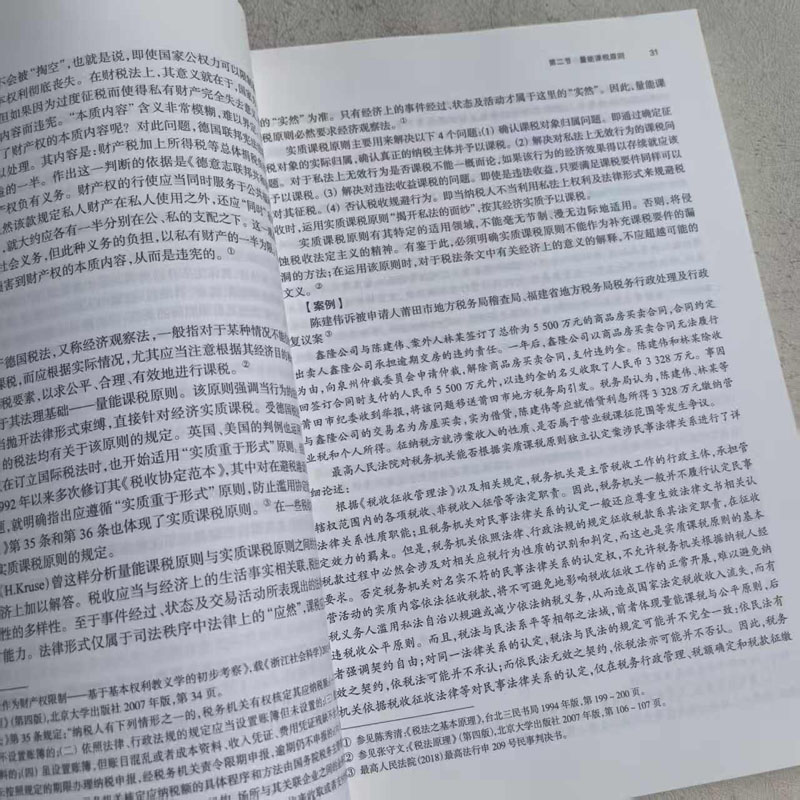 不会被“掏空”，也就是说，即使国家公权力可以限制
本权利彻底丧失。在财税法上，其意义就在于，国家
但如果因为过度征税而使得私有财产完全失去意
内容而违宪。“本质内容”含义非常模糊，难以界
了财产权的本质内容呢？对此问题，德国联邦宪
以处理。其内容是：财产税加上所得税等总体税
益的一半。作出这一判断的依据是《德意志联邦共
产权负有义务。财产权的行使应当同时服务于公共
然该款规定私人财产在私人使用之外，还应“同时
，就大约应各有一半分别在公、私的支配之下。这
社会义务，但此种义务的负担，以私有财产的一半为
损害到财产权的本质内容，从而是违宪的。①
于德国税法，又称经济观察法，一般指对于某种情况不能
课税，而应根据实际情况，尤其应当注意根据其经济目的
税要素，以求公平、合理、有效地进行课税。②
于其法理基础——量能课税原则。该原则强调当行为
当抛开法律形式束缚，直接针对经济实质课税。受德国
的税法均有关于该原则的规定。英国、美国的判例也
在订立国际税法时，也开始适用“实质重于形式”原则。
992年以来多次修订其《税收协定范本》，其中对在避税
题，就明确指出应遵循“实质重于形式”原则，防止滥用
》第35条和第36条也体现了实质课税原则。③在一些
实质课税原则的规定。
(H.Kruse)曾这样分析量能课税原则与实质课税原则之间
济上加以解答。税收应当与经济上的生活事实相关联，
性的多样性。至于事件经过、状态及交易活动所表现出的
能力。法律形式仅属于司法秩序中法律上的“应然”，课税
作为财产权限制——基于基本权利教义学的初步考察》，载《浙江社会科学》
》(第四版)，北京大学出版社2007年版，第34页。
第35条规定：“纳税人有下列情形之一的，税务机关有权核定其应纳税额
设置账簿的；(二)依照法律、行政法规的规定应当设置账簿但未设置的；
料的；(四)虽设置账簿，但账目混乱或者成本资料、收入凭证、费用凭证残缺
未按照规定的期限办理纳税申报，经税务机关责令限期申报，逾期仍不申报的
核定应纳税额的具体程序和方法由国务院税务主
第二节 量能课税原则 31
的“实然”为准。只有经济上的事件经过、状态及活动才属于这里的“实然”。因此，量能课
税原则必然要求经济观察法。①
实质课税原则主要用来解决以下4个问题：(1)确认课税对象归属问题。即通过确定征
税对象的实际归属，确认真正的纳税主体并予以课税。(2)解决对私法上无效行为的课税问
题。对于私法上无效行为是否课税不能一概而论，如果该行为的经济效果得以存续就应该
予以课税。(3)解决对违法收益课税的问题。即使是违法收益，只要满足课税要件同样可以
对其征税。(4)否认税收规避行为。即当纳税人不当利用私法上权利及法律形式来规避税
收时，运用实质课税原则“揭开私法的面纱”，按其经济实质予以课税。
实质课税原则有其特定的适用领域，不能毫无节制、漫无边际地适用。否则，将侵
蚀税收法定主义的精神。有鉴于此，必须明确实质课税原则不能作为补充课税要件的漏
洞的方法；在运用该原则时，对于税法条文中有关经济上的意义的解释，不应超越可能的
文义。②
【案例】
陈建伟诉被申请人莆田市地方税务局稽查局、福建省地方税务局税务行政处理及行政
复议案③
鑫隆公司与陈建伟、案外人林某签订了总价为5 500万元的商品房买卖合同，合同约定
出卖人鑫隆公司承担逾期交房的违约责任。一年后，鑫隆公司以商品房买卖合同无法履行
为由，向泉州仲裁委员会申请仲裁，解除商品房买卖合同，支付违约金。陈建伟和林某除收
回签订合同时支付的人民币5 500万元外，以违约金的名义收取了人民币3 328万元。事因
莆田市纪委收到举报，将该问题移送莆田市地方税务局引发。税务局认为，陈建伟、林某等
与鑫隆公司的交易名为房屋买卖，实为借贷，陈建伟等应就借贷利息所得3 328万元缴纳营
业税和个人所得。征纳税方就涉案收入的性质、是否属于营业税课征范围等发生争议。
最高人民法院对税务机关能否根据实质课税原则独立认定案涉民事法律关系进行了详
细论述：
根据《税收征收管理法》以及相关规定，税务机关是主管税收工作的行政主体，承担管
辖权范围内的各项税收、非税收入征管等法定职责。因此，税务机关一般并不履行认定民事
法律关系性质职能；且税务机关对民事法律关系的认定一般还应尊重生效法律文书相关认
定效力的羁束。但是，税务机关依照法律、行政法规的规定征收税款系其法定职责，在征收
税款过程中必然会涉及对相关应税行为性质的识别和判定，而这也是实质课税原则的基本
要求。否定税务机关对名实不符的民事法律关系的认定权，不允许税务机关根据纳税人经
营活动的实质内容依法征收税款，将不可避免地影响税收征收工作的正常开展，难以避免纳
税义务人滥用私法自治以规避或减少依法纳税义务，从而造成国家法定税收收入流失，而有
违税收公平原则。而且，税法与民法系平等相邻之法域，前者体现量能课税与公平原则，后
者强调契约自由；对同一法律关系的认定，税法与民法的规定可能并不完全一致：依民法有
效之契约，依税法可能并不承认；而依民法无效之契约，依税法亦可能并不否认。因此，税务
机关依据税收征收法律等对民事法律关系的认定，仅在税务行政管理、税额确定和税款征缴
① 参见陈秀清：《税法之基本原理》，台北三民书局1994年版，第199－200页。
② 参见张守文：《税法原理》(第四版)，北京大学出版社2007年版，第106－107页。
③ 最高人民法院(2018)最高法行申209号民事判决书。